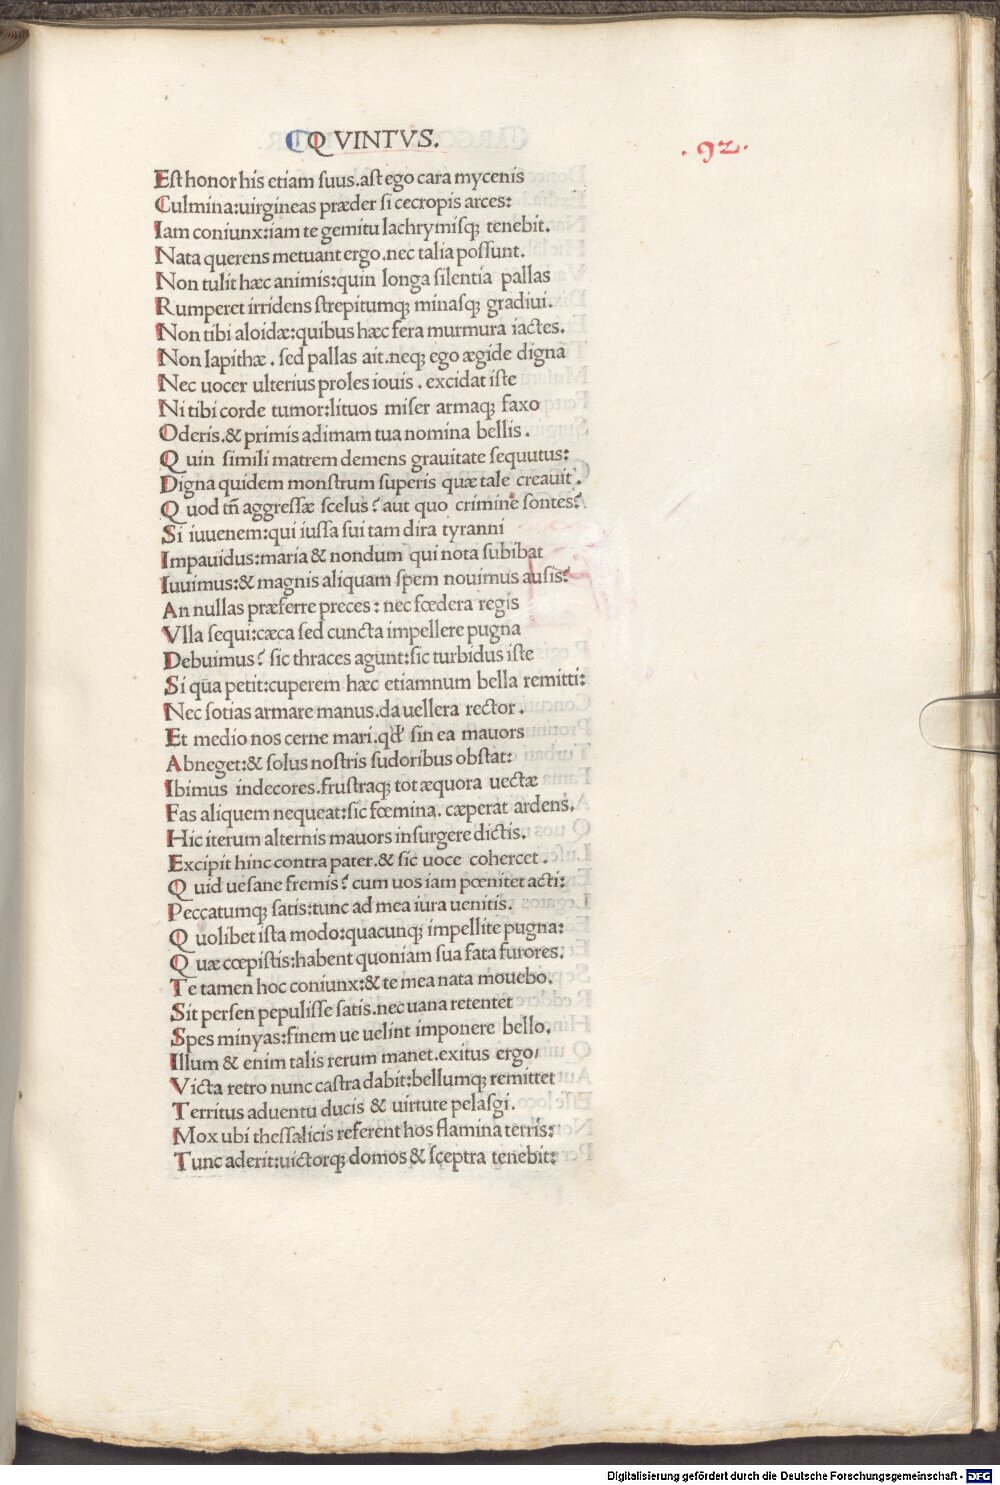 QVINTVS.
.92.
Est honor his etiam suus.ast ego cara mycenis
Culmina:uirgineas præder si cecropis arces:
Iam coniunx:iam te gemitu lachrymisq; tenebit.
Nata querens metuant ergo.nec talia possunt.
Non tulit hæc animis:quin longa silentia pallas
Rumperet irridens strepitumq; minasq; gradiui.
Non tibi aloidæ:quibus hæc fera murmura iactes.
Non lapithæ. sed pallas ait.neq; ego ægide digna
Nec uocer ulterius proles iouis. excidat iste
Ni tibi corde tumor:lituos miser armaq; faxo
Oderis.& primis adimam tua nomina bellis.
Quin simili matrem demens grauitate sequutus:
Digna quidem monstrum superis quæ tale creauit.
Quod tñ aggressæ scelus? aut quo crimine sontes?
Si iuuenem:qui iussa sui tam dira tyranni
Impauidus:maria & nondum qui nota subibat
Iuuimus:& magnis aliquam spem nouimus ausis?
An nullas præferre preces: nec fœdera regis
Vlla sequi:cæca sed cuncta impellere pugna
Debuimus? sic thraces agunt:sic turbidus iste
Si qua petit:cuperem hæc etiamnum bella remitti:
Nec sotias armare manus.da uellera rector.
Et medio nos cerne mari.qđ sin ea mauors
Abneget:& solus nostris sudoribus obstat:
Ibimus indecores.frustraq; tot æquora uectæ
Fas aliquem nequeat:sic fœmina. cæperat ardens.
Hic iterum alternis mauors insurgere dictis.
Excipit hinc contra pater.& sic uoce cohercet.
Quid uesane fremis? cum uos iam pœnitet acti:
Peccatumq; satis:tunc ad mea iura uenitis.
Quolibet ista modo:quacunq; impellite pugna:
Quæ cœpistis:habent quoniam sua fata furores.
Te tamen hoc coniunx:& te mea nata mouebo.
Sit persen pepulisse satis.nec uana retentet
Spes minyas:finem ue uelint imponere bello.
Illum & enim talis rerum manet.exitus ergo/
Victa retro nunc castra dabit:bellumq; remittet
Territus aduentu ducis & uirtute pelasgi.
Mox ubi thessalicis referent hos flamina terris:
Tunc aderit:uictorq; domos & sceptra tenebit:
Digitalisierung gefördert durch die Deutsche Forschungsgemeinschaft - DFG